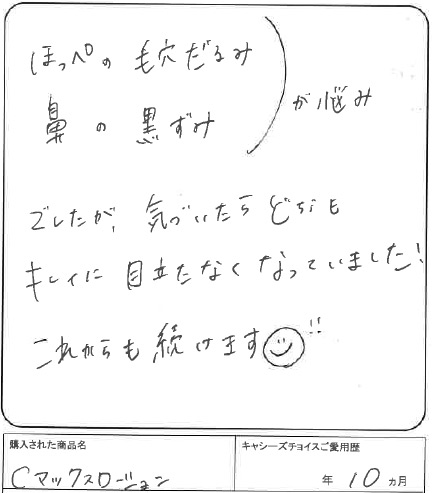 ほっぺの 毛穴だるみ
鼻の 黒ずみ
が悩み
でしたが、気づいたら どちらも
キレイに 目立たなくなっていました!
これからも 続けます☺!!
購入された商品名
キャシーズチョイスご愛用歴
Cマックスローション
年 10 カ月